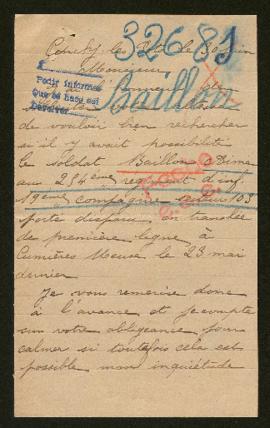 32681
Monsieur
Pedir informes
Que se haga así
Devolver
Baillon
J'ai l'honneur de
de vouloir bien rechercher
si il y avait possibilité
le soldat Baillon
au 284ème régiment d'inf
19ème compagnie secteur 103
porté disparu en tranchée
de première ligne à
Cumières Meuse le 23 mai
dernier
Je vous remercie donc
à l'avance et je compte
sur votre obligeance pour
calmer si toutefois cela est
possible mon inquiétude